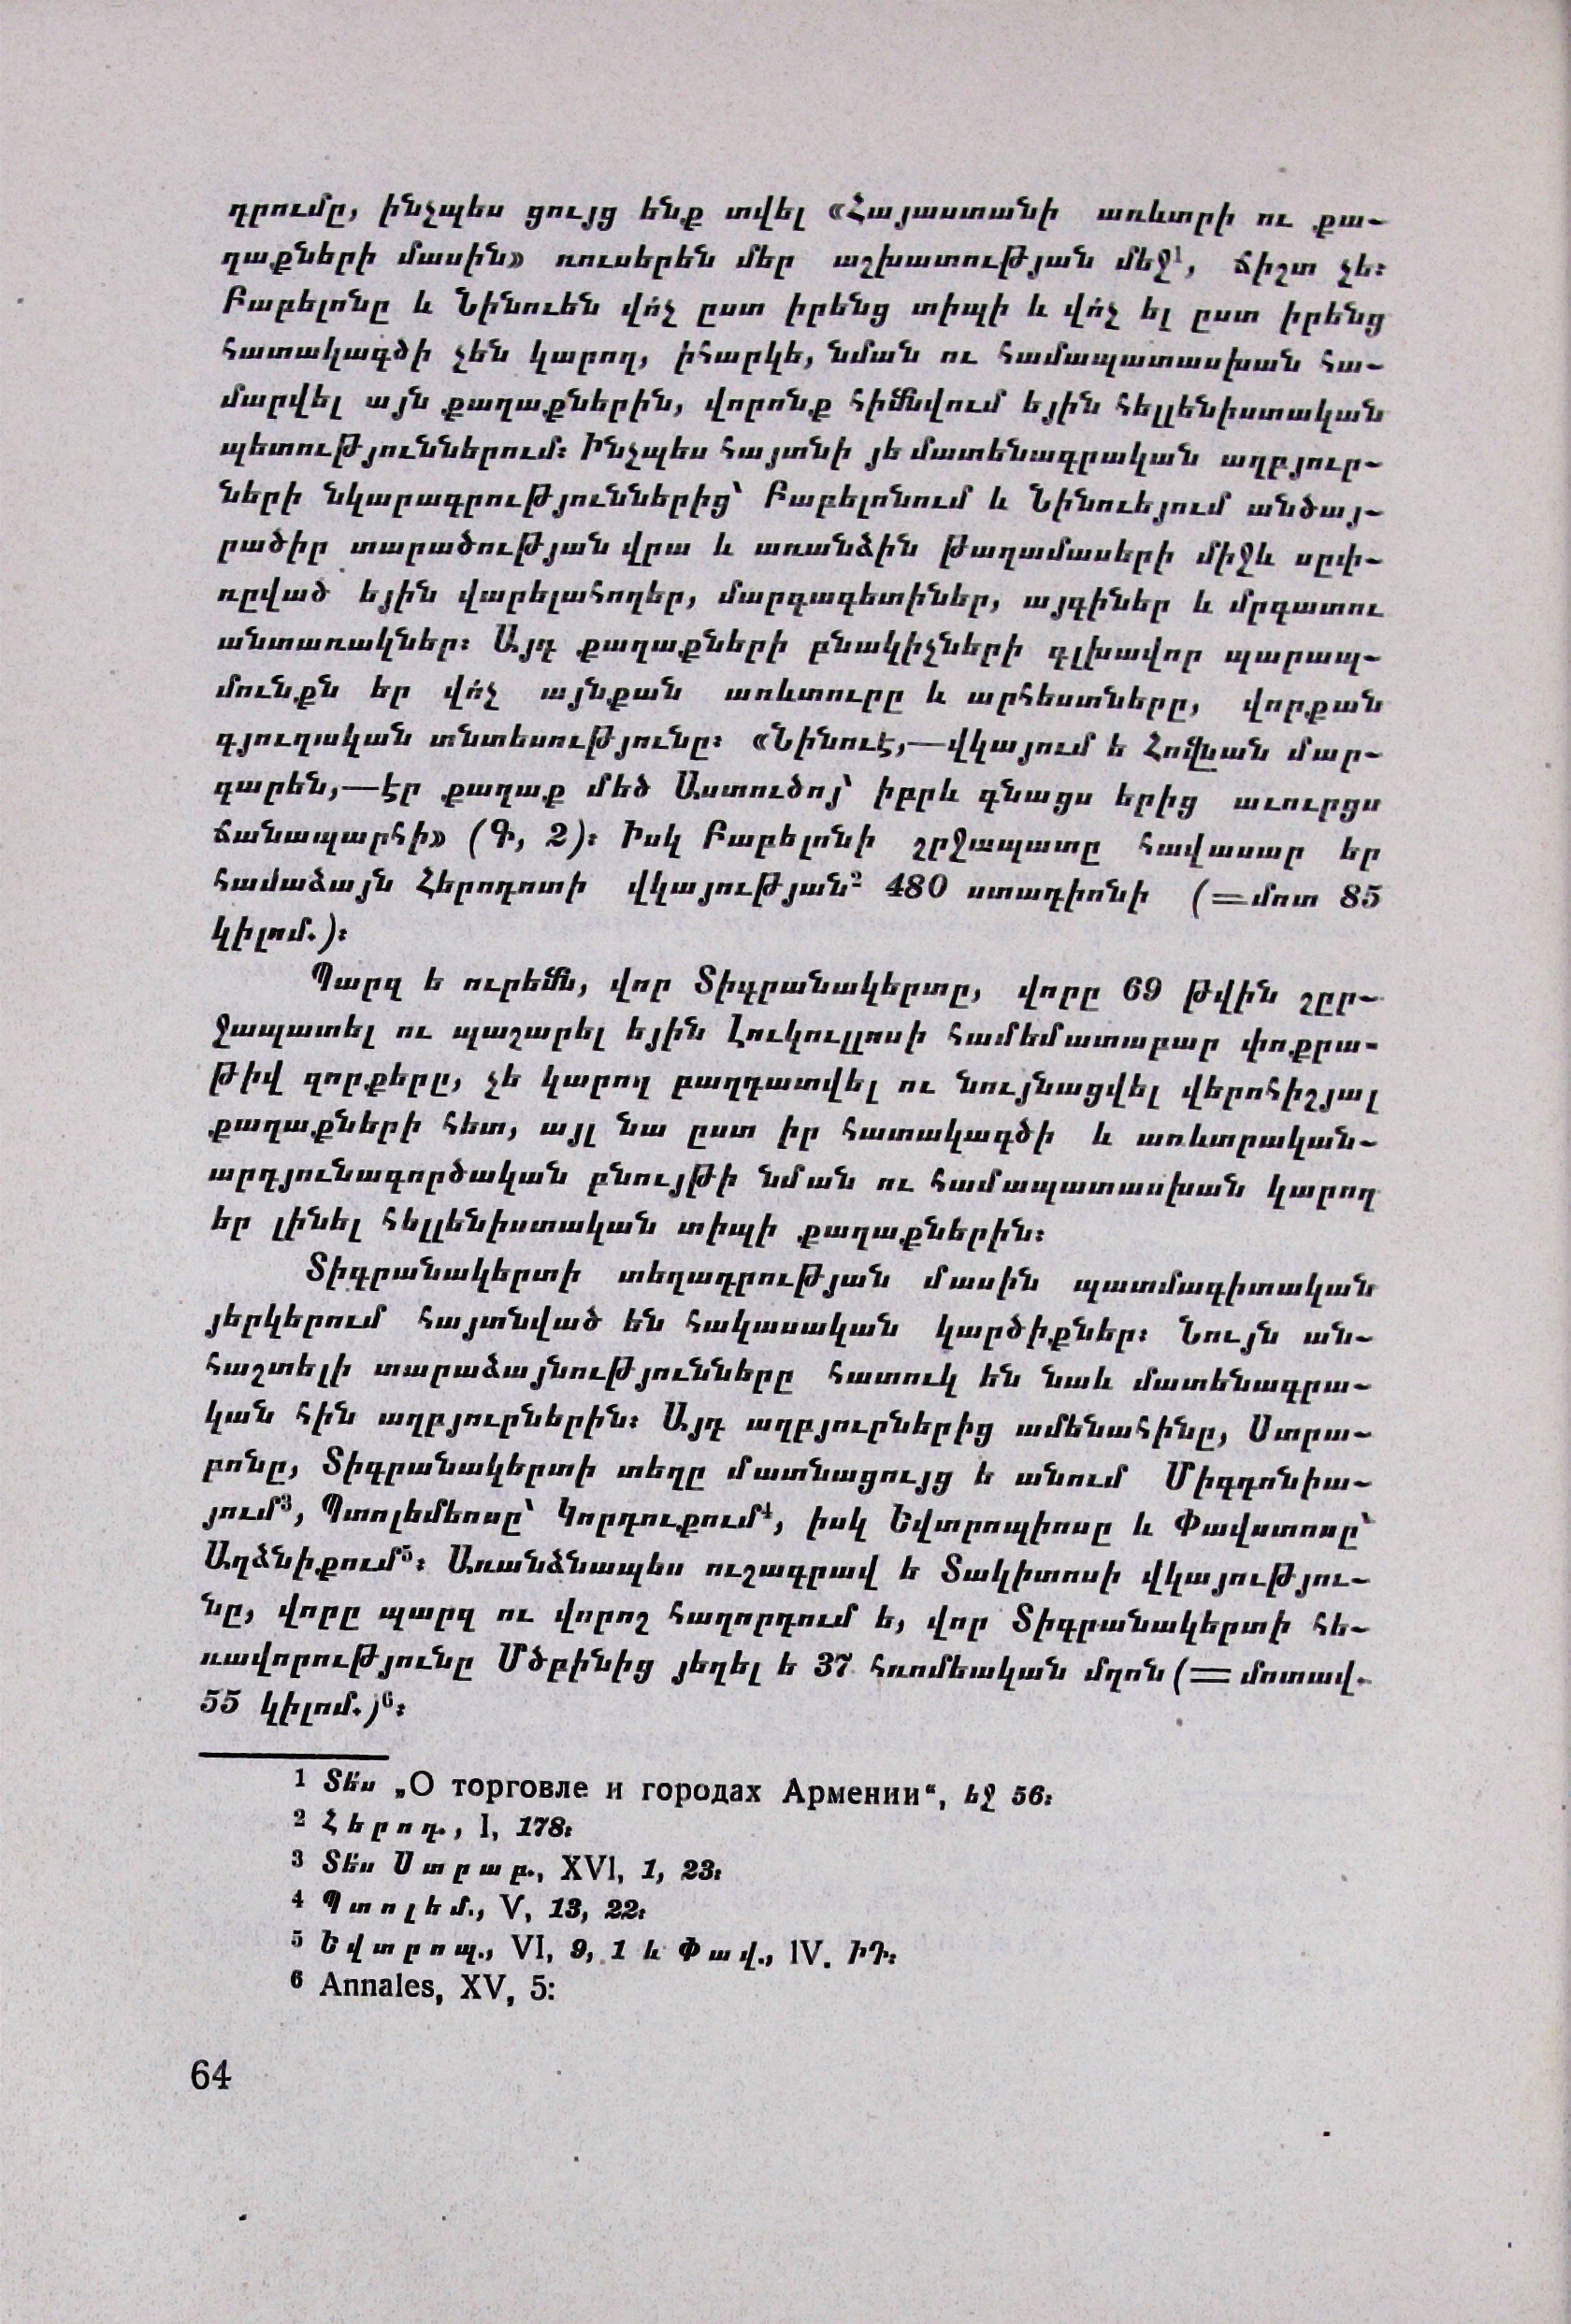 դրումը, ինչպես ցույց ենք տվել «Հայաստանի առևտրի ու քա-
ղաքների մասին» ռուսերեն մեր աշխատության մեջ¹, ճիշտ չե:
Բաբելոնը և Նինուեն վո՛չ ըստ իրենց տիպի և վո՛չ ել ըստ իրենց
հատակագծի չեն կարող, իհարկե, նման ու համապատասխան հա-
մարվել այն քաղաքներին, վորոնք հիմնվում եյին հելլենիստական
պետություններում: Ինչպես հայտնի յե մատենագրական աղբյուր-
ների նկարագրություններից՝ Բաբելոնում և Նինուեյում անծայ-
րածիր տարածության վրա և առանձին թաղամասերի միջև սըփ-
ռըված եյին վարելահողեր, մարգագետիններ, այգիներ և մրգատու
անտառակներ: Այդ քաղաքների բնակիչների գլխավոր պարապ-
մունքն եր վո՛չ այնքան առևտուրը և արհեստները, վորքան
գյուղական տնտեսությունը: «Նինուէ,—վկայում ե Հովնան մար-
գարեն,—էր քաղաք մեծ Աստուծոյ՝ իբրև գնացս երից աւուրցս
ճանապարհի» (Գ, 2): Իսկ Բաբելոնի շրջապատը հավասար եր
համաձայն Հերոդոտի վկայության² 480 ստադիոնի (=մոտ 85
կիլոմ.):
Պարզ ե ուրեմն, վոր Տիգրանակերտը, վորը 69 թվին շըր-
ջապատել ու պաշարել եյին Լուկուլլոսի համեմատաբար փոքրա-
թիվ զորքերը, չե կարող բաղդատվել ու նույնացվել վերոհիշյալ
քաղաքների հետ, այլ նա ըստ իր հատակագծի և առևտրական-
արդյունագործական բնույթի նման ու համապատասխան կարող
եր լինել հելլենիստական տիպի քաղաքներին:
Տիգրանակերտի տեղադրության մասին պատմագիտական
յերկերում հայտնված են հակասական կարծիքներ: Նույն ան-
հաշտելի տարաձայնությունները հատուկ են նաև մատենագրա-
կան հին աղբյուրներին: Այդ աղբյուրներից ամենահինը, Ստրա-
բոնը, Տիգրանակերտի տեղը մատնացույց ե անում Միգդոնիա-
յում³, Պտոլեմեոսը՝ Կորդուքում⁴, իսկ Եվտրոպիոսը և Փավստոսը՝
Աղձնիքում⁵: Առանձնապես ուշագրավ ե Տակիտոսի վկայությու-
նը, վորը պարզ ու վորոշ հաղորդում ե, վոր Տիգրանակերտի հե-
ռավորությունը Մծբինից յեղել ե 37 հռոմեական մղոն (= մոտավ.
55 կիլոմ.)⁶:
¹ Տե՛ս „О торговле и городах Армении“, եջ 56:
² Հերոդ., I, 178:
³ Տե՛ս Ստրաբ., XVI, 1, 23:
⁴ Պտոլեմ., V, 13, 22:
⁵ Եվտրոպ., VI, 9, 1 և Փավ., IV. ԻԴ:
⁶ Annales, XV, 5:
64